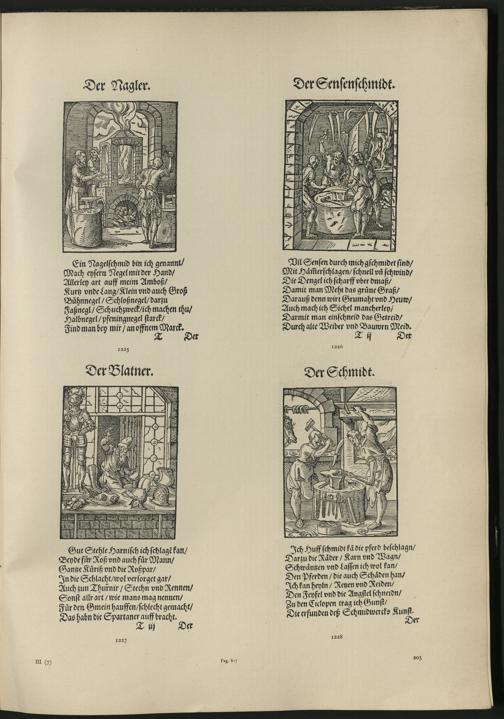 Der Nagler.
Ein Nagelschmid bin ich genannt/
Mach eysern Negel mit der Hand/
Allerley art auff meim Amboß/
Kurtz vnde Lang/Klein vnd auch Groß
Bühnnegel/Schloßnegel/darzu
Faßnegl/Schuchzweck/ich machen thu/
Halbnegel/pfenningnegel starck/
Find man bey mir/an offnem Marck.
T Der
1225
Der Sensenschmidt.
Vil Sensen durch mich gschmidet sind/
Mit Häm̃erschlagen/schnell vñ schwind/
Die Dengel ich scharff vber dmaß/
Damit man Meht das grüne Graß/
Darauß denn wirt Grumaht vnd Heuw/
Auch mach ich Sichel mancherley/
Darmit man einschneid das Getreid/
Durch alte Weiber vnd Bauwrn Meid.
T ij Der
1226
Der Blatner.
Gut Stehle Harnisch ich schlagẽ kan/
Beyde für Roß vnd auch für Mann/
Gantze Küriß vnd die Roßpar/
In die Schlacht/wol versorget gar/
Auch zum Thurnir/Stechn vnd Rennen/
Sonst allr art/wie mans mag nennen/
Für den Gmein hauffen/schlecht gemacht/
Das habn die Spartaner auff bracht.
T iij Der
1227
Der Schmidt.
Ich Huffschmidt kã die pferd beschlagn/
Darzu die Räder/Karn vnd Wagn/
Schwäntzen vnd Lassen ich wol kan/
Den Pferden/die auch Schäden han/
Ich kan heyln/Reyen vnd Reiden/
Den Feyfel vnd die Angstel schneidn/
Zu den Ciclopen trag ich Gunst/
Die erfunden deß Schmidwercks Kunst.
Der
1228
III (7)
205